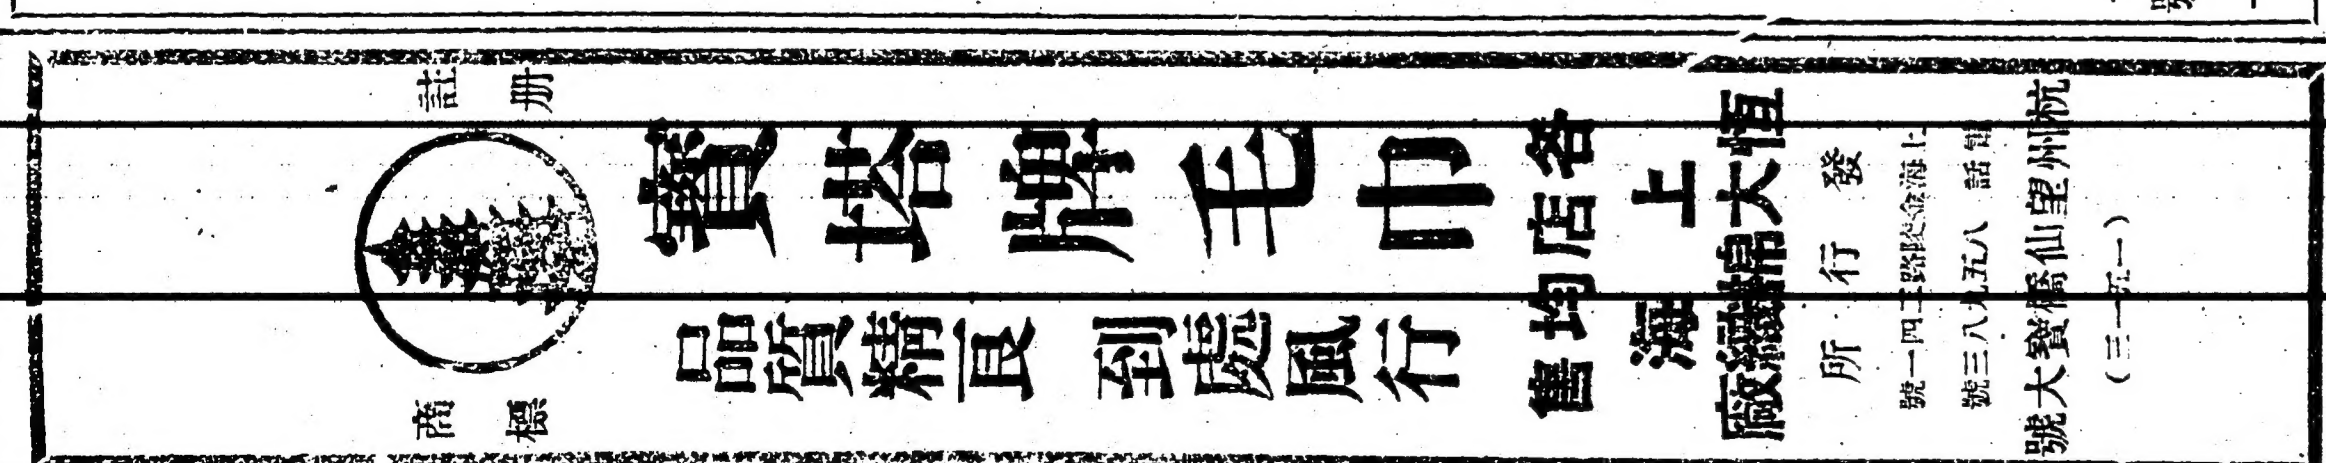 註冊
商標
寶塔牌毛巾
品質精良 到處風行
各店均售
上海
恒大棉織廠
發行所
上海金陵路三四一號
電話 八五九八三號
杭州望仙橋寶大號
（一五一三）